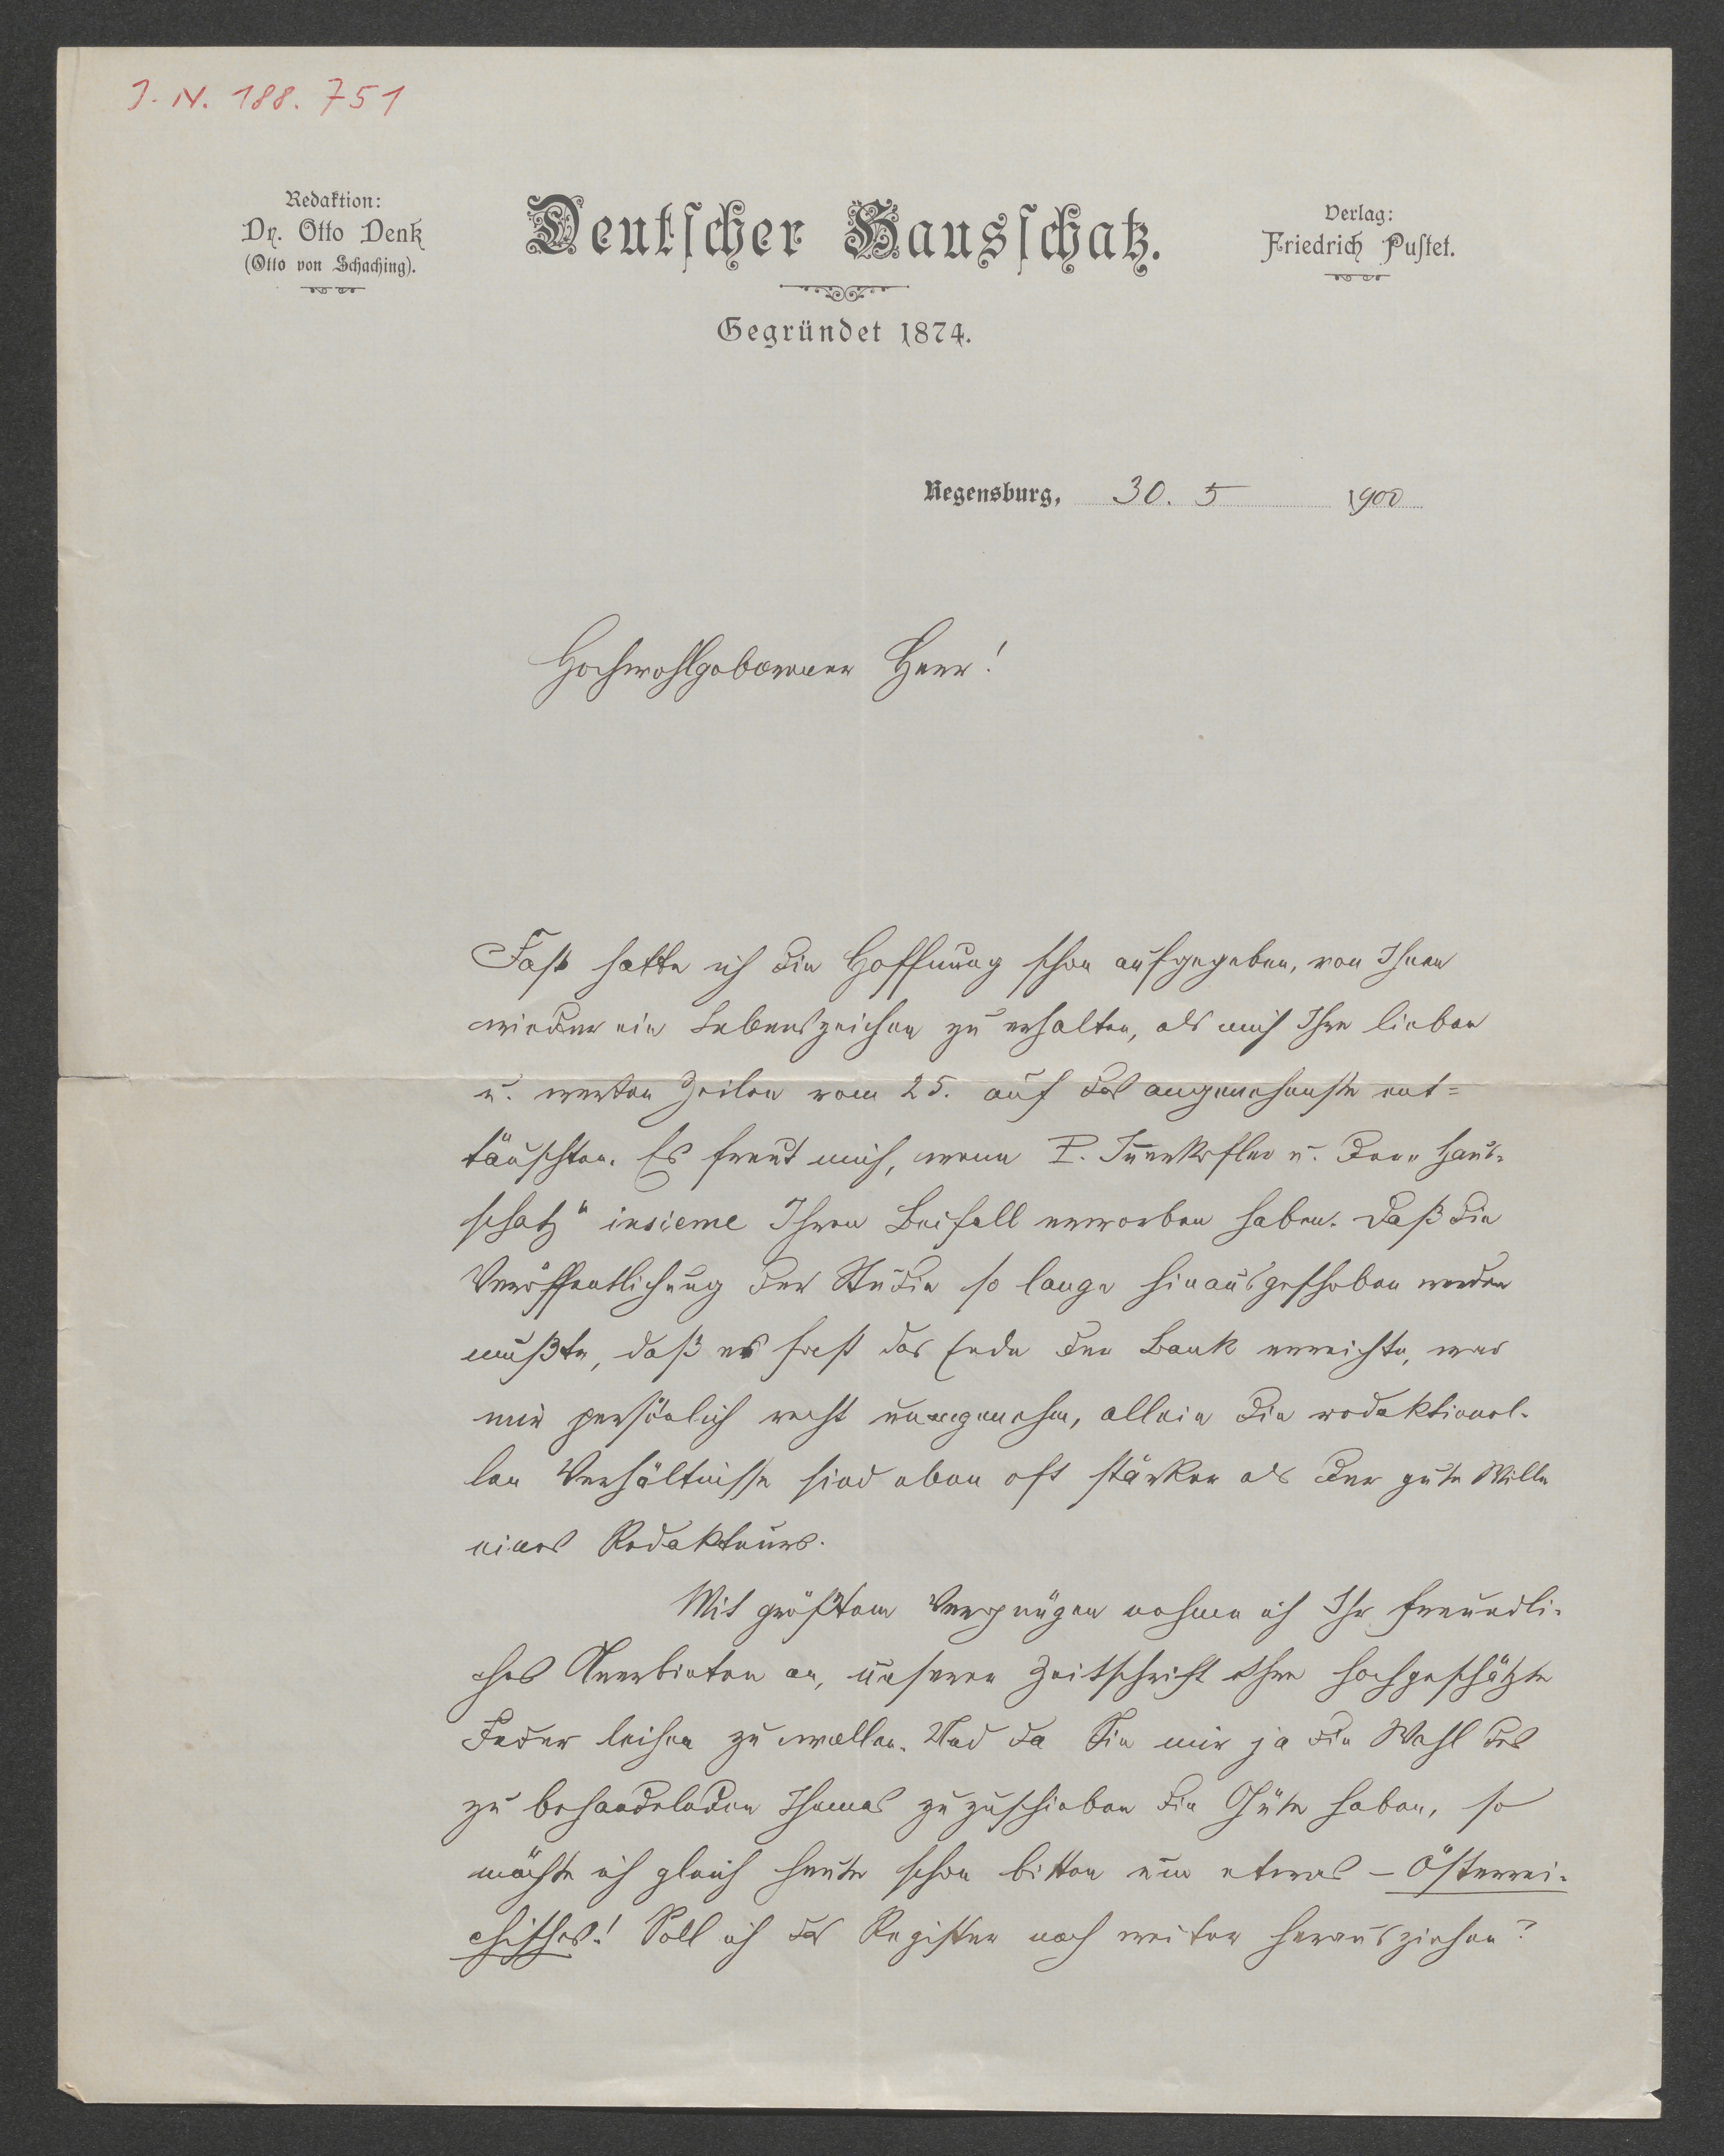 J. N. 188. 751
Redaktion:
Dr. Otto Denk
(Otto von Schaching).
Deutscher Hausschatz.
Gegründet 1874.
Verlag:
Friedrich Pustet.
Regensburg, 30. 5 1900
Hochwohlgeborener Herr!
Fast hatte ich die Hoffnung schon aufgegeben, von Ihnen
wieder ein Lebenszeichen zu erhalten, als mich Ihre lieben
u. werten Zeilen vom 25. auf das angenehmste ent=
täuschten. Es freut mich, wenn P. Innerkofler u. der „Haus-
schatz" insieme Ihren Beifall erworben haben. Daß die
Veröffentlichung der Studie so lange hinausgeschoben werden
mußte, daß es fast das Ende der Bank erreichte, war
mir persönlich recht unangenehm, allein die redaktionel-
len Verhältnisse sind eben oft stärker als der gute Wille
eines Redakteurs.
Mit größtem Vergnügen nehme ich Ihr freundli-
ches Anerbieten an, unserer Zeitschrift Ihre hochgeschätzte
Feder leihen zu wollen. Und da Sie mir ja die Wahl des
zu behandelnden Themas zuzuschieben die Güte haben, so
möchte ich gleich heute schon bitten um etwas – Österrei-
chisches! Soll ich das Register noch weiter herausziehen?